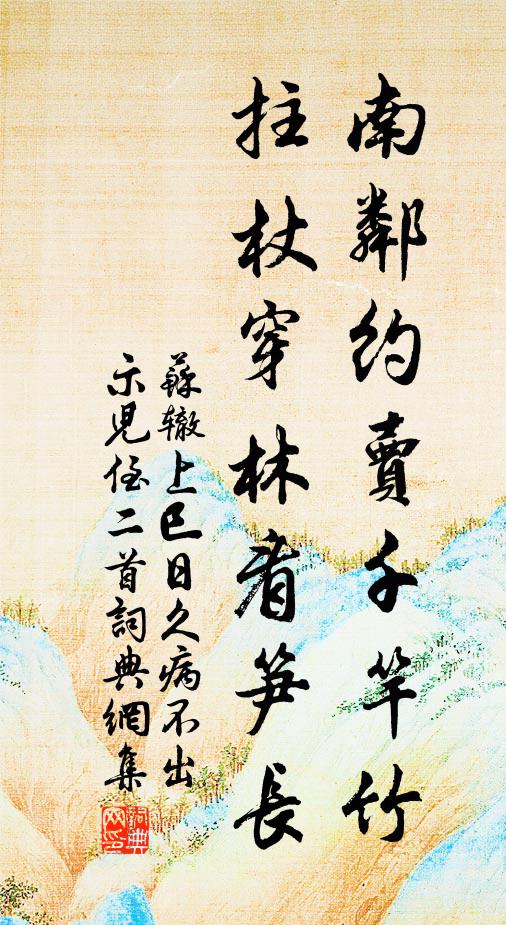 南鄰約賣千竿竹
拄杖穿林看笋長
蘇辙上巳日久病不出
示児侄二首詞典網集
詞典
网印